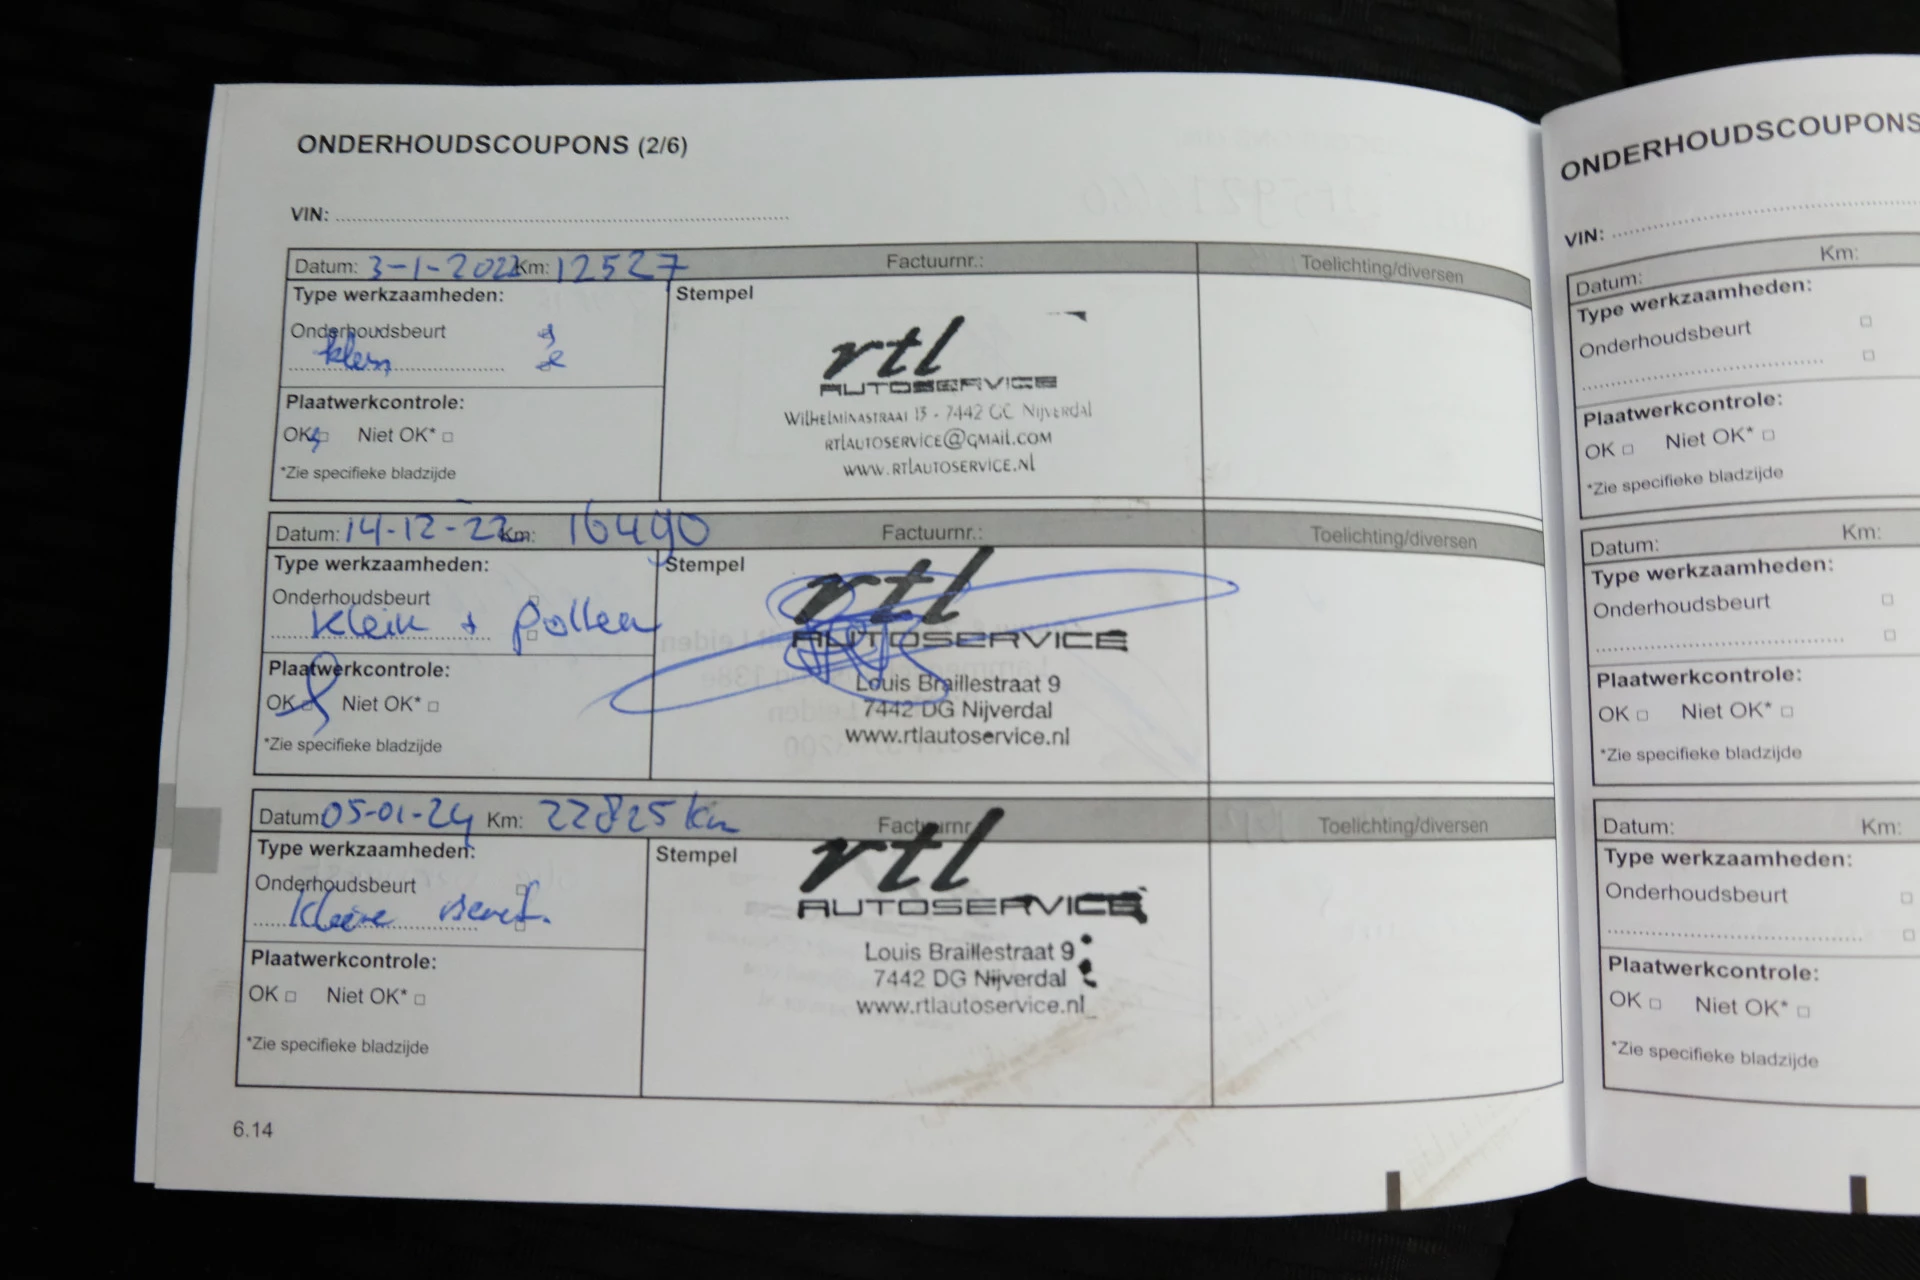 ONDERHOUDSCOUPONS (2/6)
VIN:
Datum: 3-1-2022 Km: 12527 Factuurnr.: Toelichting/diversen
Type werkzaamheden:
Stempel
Onderhoudsbeurt
klein
Plaatwerkcontrole:
OK □ Niet OK* □
*Zie specifieke bladzijde
rtl
AUTOSERVICE
Wilhelminastraat 13 - 7442 GC Nijverdal
rtlautoservice@gmail.com
www.rtlautoservice.nl
Datum: 14-12-22 Km: 16490 Factuurnr.: Toelichting/diversen
Type werkzaamheden:
Stempel
Onderhoudsbeurt □
Klein + pollen □
Plaatwerkcontrole:
OK □ Niet OK* □
*Zie specifieke bladzijde
rtl
AUTOSERVICE
Louis Braillestraat 9
7442 DG Nijverdal
www.rtlautoservice.nl
Datum: 05-01-24 Km: 22825 km Factuurnr. Toelichting/diversen
Type werkzaamheden:
Stempel
Onderhoudsbeurt □
Kleine □
Plaatwerkcontrole:
OK □ Niet OK* □
*Zie specifieke bladzijde
rtl
AUTOSERVICE
Louis Braillestraat 9
7442 DG Nijverdal
www.rtlautoservice.nl
6.14
ONDERHOUDSCOUPONS
VIN:
Datum: Km:
Type werkzaamheden:
Onderhoudsbeurt □
□
Plaatwerkcontrole:
OK □ Niet OK* □
*Zie specifieke bladzijde
Datum: Km:
Type werkzaamheden:
Onderhoudsbeurt □
□
Plaatwerkcontrole:
OK □ Niet OK* □
*Zie specifieke bladzijde
Datum: Km:
Type werkzaamheden:
Onderhoudsbeurt □
□
Plaatwerkcontrole:
OK □ Niet OK* □
*Zie specifieke bladzijde